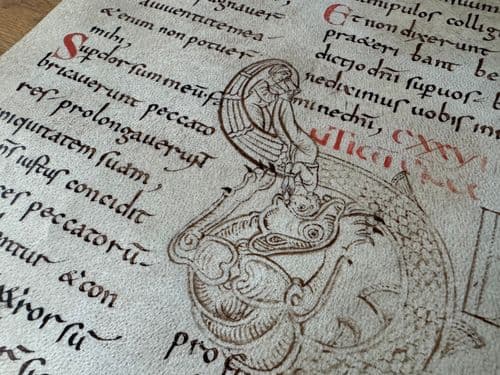 pugnauer
iuuentutemea·
&enim non potuer
mihi,
Supdorsummeū f
bricauerunt peccato
res prolongauerunt
iniquitatem suam,
dn̄s iustus concidit
res peccatorū·
entur &con
&rorsū
prof
nipulos collig
Et non dixerunt
bant be
dictio dn̄i sup uos·
nediximus uobis in
minedn̄i, CXXVI
nticū